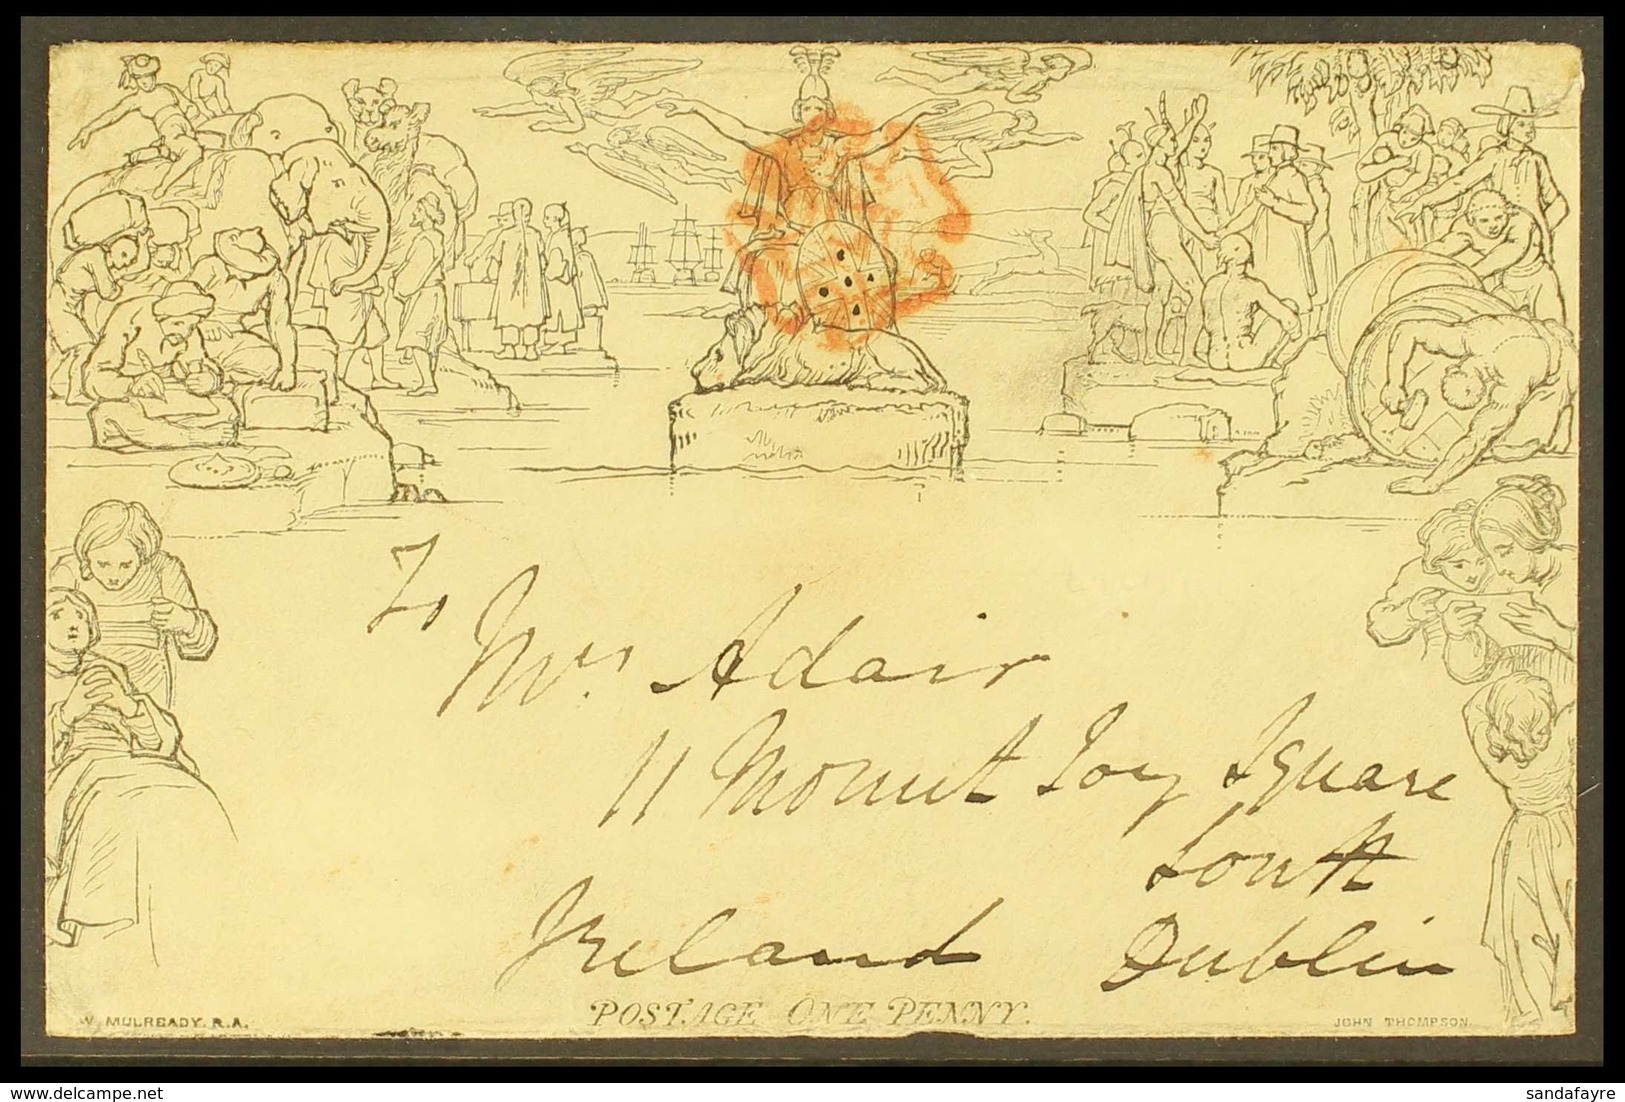 To
Mrs. Adair
11 Mount Joy Square
South
Ireland Dublin
POSTAGE ONE PENNY.
W. MULREADY. R.A.
JOHN THOMPSON.
www.delcampe.net
sandafayre